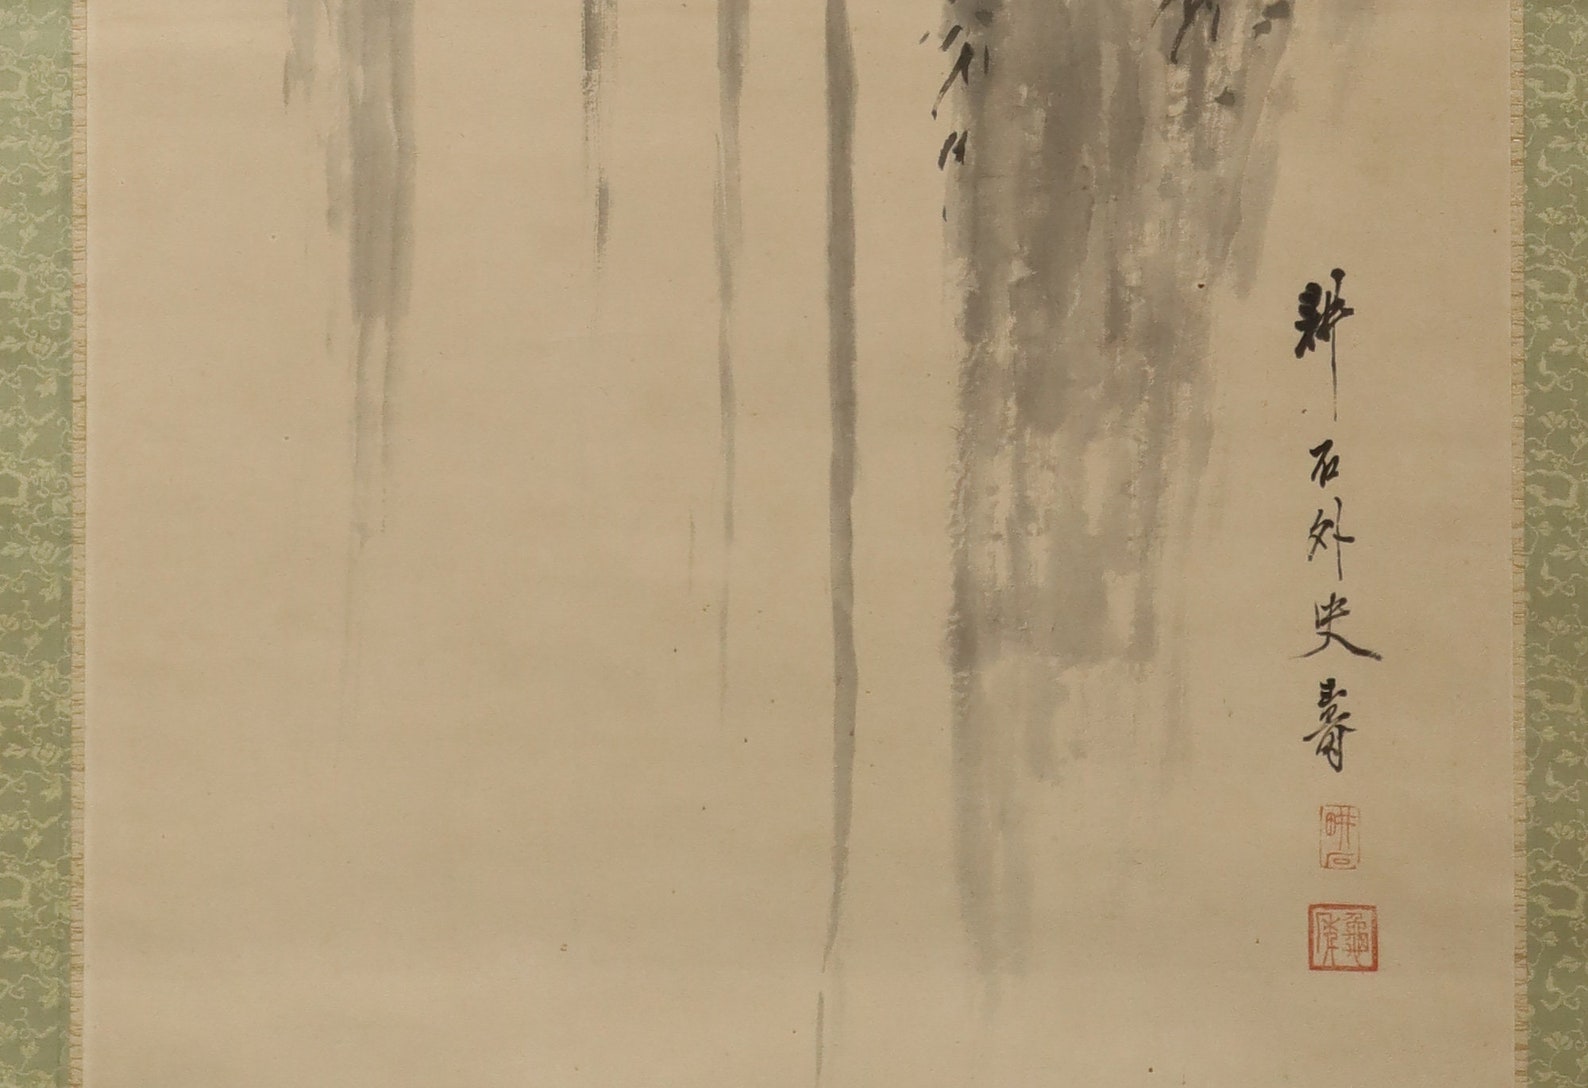 耕石外史壽
耕石